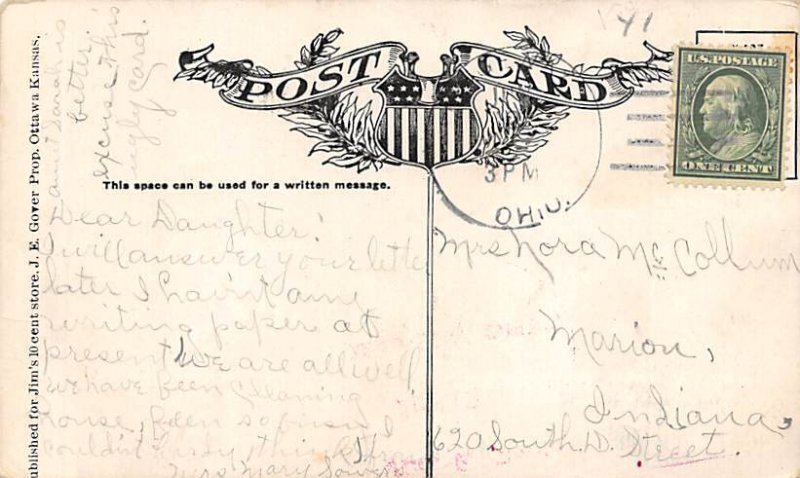 POST CARD
U.S. POSTAGE
ONE CENT
3 PM
OHIO.
This space can be used for a written message.
Published for Jim's 10 cent store. J. E. Gover Prop. Ottawa Kansas.
Dear Daughter:
I will answer your letter
later I havint any
writing paper at
present We are all well
we have been cleaning
house, been so busy I
couldn't
Mrs Mary
aunt Sarah is
better,
excuse this
ugly card.
Mrs Nora McCollum
Marion,
Indiana,
620 South. D. Street.
41